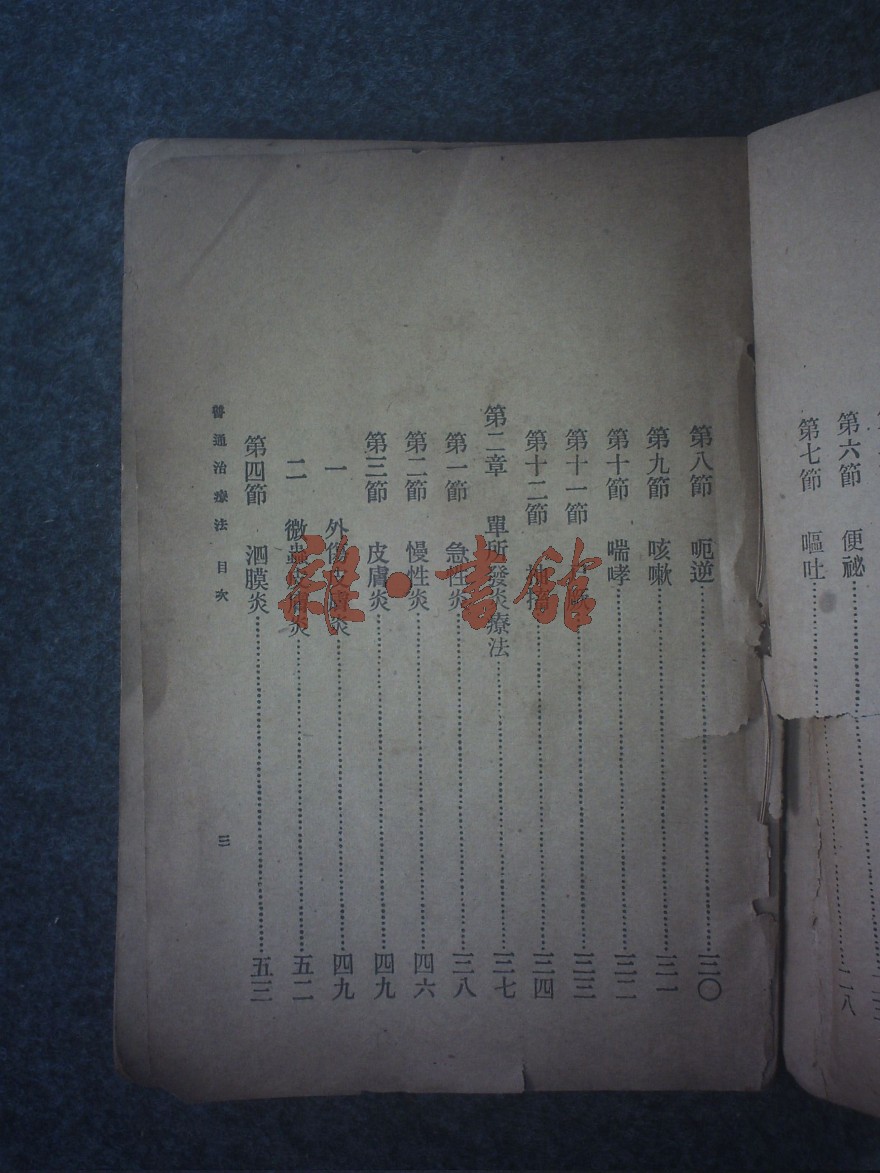 第六節　便祕
第七節　嘔吐……二八
第八節　呃逆……三〇
第九節　咳嗽……三一
第十節　喘哮……三二
第十一節……三三
第十二節……三四
第二章　單所發炎療法……三七
第一節　急性炎……三八
第二節　慢性炎……四六
第三節　皮膚炎……四九
一　外傷皮膚炎……四九
二　微蟲皮膚炎……五二
第四節　泗膜炎……五三
普通治療法　目次
三
雜·書館